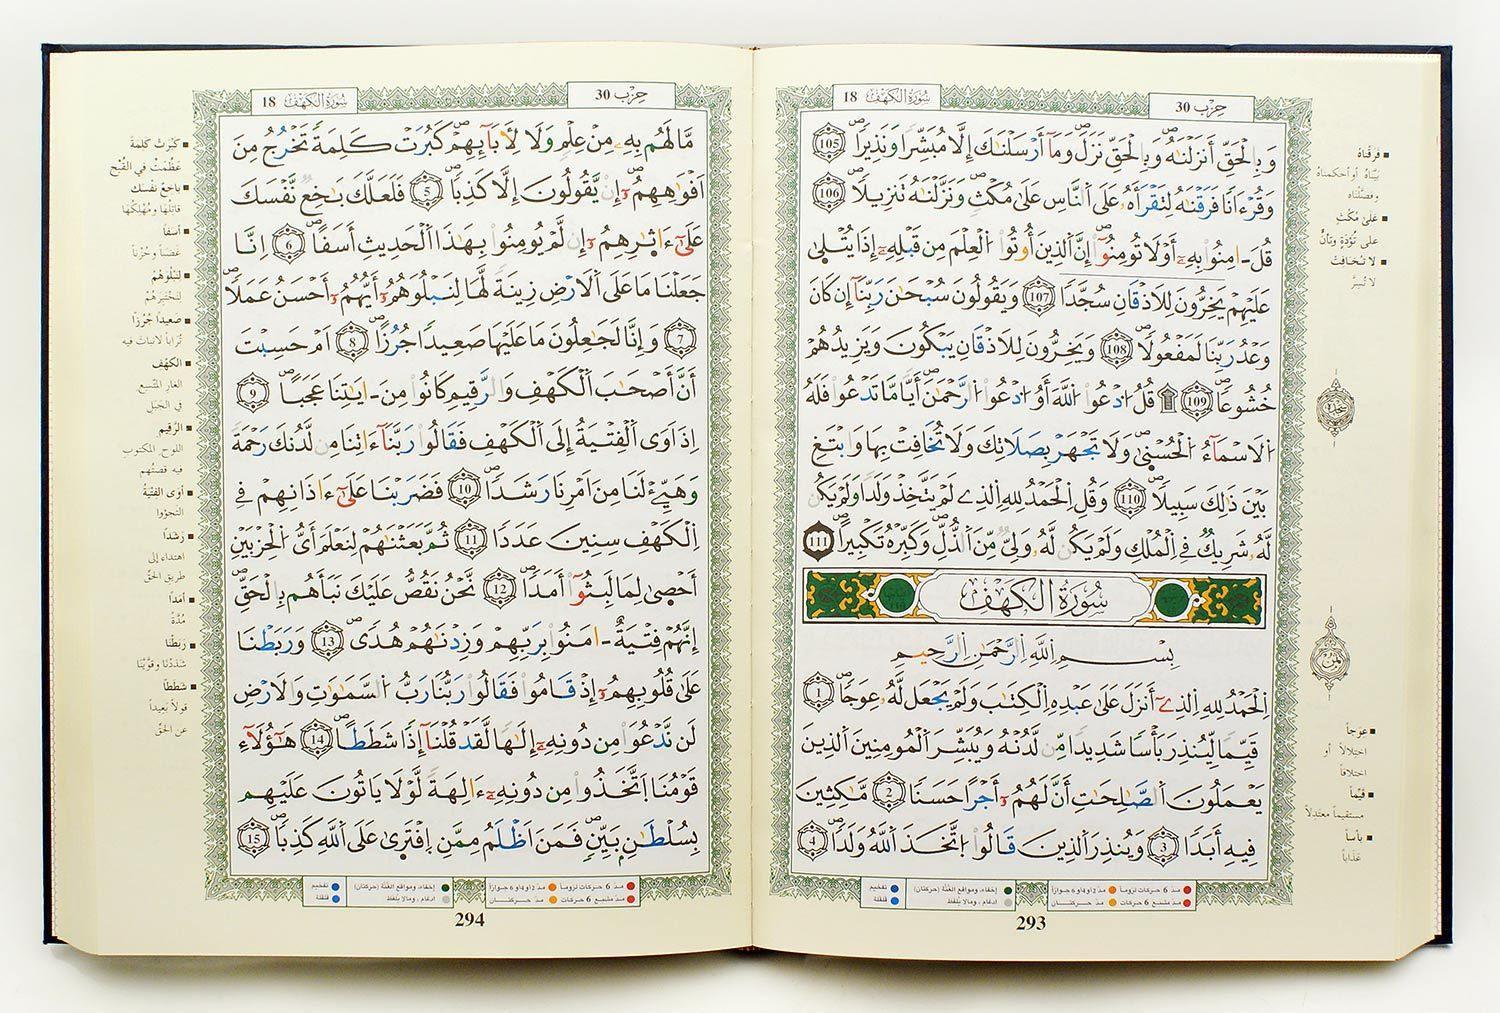 سُورَةُ الْكَهْفِ 18
حِزْب 30
وَبِالْحَقِّ أَنزَلْنَٰهُ وَبِالْحَقِّ نَزَلَ وَمَآ أَرْسَلْنَٰكَ إِلَّا مُبَشِّرًا وَنَذِيرًا 105
وَقُرْءَانًا فَرَقْنَٰهُ لِتَقْرَأَهُۥ عَلَى النَّاسِ عَلَىٰ مُكْثٍ وَنَزَّلْنَٰهُ تَنزِيلًا 106
قُلَ ـ امِنُوا بِهِۦٓ أَوْ لَا تُومِنُوٓا إِنَّ الذِينَ أُوتُوا الْعِلْمَ مِن قَبْلِهِۦٓ إِذَا يُتْلَىٰ
عَلَيْهِمْ يَخِرُّونَ لِلَاذْقَانِ سُجَّدًا 107 وَيَقُولُونَ سُبْحَٰنَ رَبِّنَآ إِن كَانَ
وَعْدُ رَبِّنَا لَمَفْعُولًا 108 وَيَخِرُّونَ لِلَاذْقَانِ يَبْكُونَ وَيَزِيدُهُمْ
خُشُوعًا 109 ۩ قُلُ ادْعُوا اللَّهَ أَوُ ادْعُوا الرَّحْمَٰنَ أَيًّا مَّا تَدْعُوا فَلَهُ
الَاسْمَآءُ الْحُسْنَىٰ وَلَا تَجْهَرْ بِصَلَاتِكَ وَلَا تُخَافِتْ بِهَا وَابْتَغِ
بَيْنَ ذَٰلِكَ سَبِيلًا 110 وَقُلِ الْحَمْدُ لِلهِ الذِے لَمْ يَتَّخِذْ وَلَدًا وَلَمْ يَكُن
لَّهُۥ شَرِيكٌ فِے الْمُلْكِ وَلَمْ يَكُن لَّهُۥ وَلِيٌّ مِّنَ الذُّلِّ وَكَبِّرْهُ تَكْبِيرًا 111
سُورَةُ الْكَهْفِ
بِسْمِ اللَّهِ الرَّحْمَٰنِ الرَّحِيمِ
الْحَمْدُ لِلهِ الذِےٓ أَنزَلَ عَلَىٰ عَبْدِهِ الْكِتَٰبَ وَلَمْ يَجْعَل لَّهُۥ عِوَجًا 1
قَيِّمًا لِّيُنذِرَ بَأْسًا شَدِيدًا مِّن لَّدُنْهُ وَيُبَشِّرَ الْمُومِنِينَ الذِينَ
يَعْمَلُونَ الصَّٰلِحَٰتِ أَنَّ لَهُمُۥٓ أَجْرًا حَسَنًا 2 مَّٰكِثِينَ
فِيهِ أَبَدًا 3 وَيُنذِرَ الذِينَ قَالُوا اتَّخَذَ اللَّهُ وَلَدًا 4
فَرَقْنَاهُ
بَيَّنَاهُ أو أحكمناهُ
وفصَّلْناه
عَلَىٰ مُكْثٍ
على تُؤَدَةٍ وتأنٍّ
لا تُخَافِتْ
لا تُسِرَّ
عِوَجاً
اختلالاً أو
اختلافاً
قَيِّماً
مستقيماً معتدلاً
بأساً
عَذَاباً
مدّ 6 حركات لزوماً مدّ 2 أو 4 أو 6 جوازاً إخفاء، ومواقع الغُنَّة (حركتان) تفخيم
مدّ مشبع 6 حركات مدّ حركتان إدغام، وما لا يُلفظ قلقلة
293
سُورَةُ الْكَهْفِ 18
حِزْب 30
مَّا لَهُم بِهِۦ مِنْ عِلْمٍ وَلَا لِأٓبَآئِهِمْ كَبُرَتْ كَلِمَةً تَخْرُجُ مِنَ
اَفْوَٰهِهِمُۥٓ إِن يَّقُولُونَ إِلَّا كَذِبًا 5 فَلَعَلَّكَ بَٰخِعٌ نَّفْسَكَ
عَلَىٰٓ ءَاثَٰرِهِمُۥٓ إِن لَّمْ يُومِنُوا بِهَٰذَا الْحَدِيثِ أَسَفًا 6 اِنَّا
جَعَلْنَا مَا عَلَى الَارْضِ زِينَةً لَّهَا لِنَبْلُوَهُمُۥٓ أَيُّهُمُۥٓ أَحْسَنُ عَمَلًا
7 وَإِنَّا لَجَٰعِلُونَ مَا عَلَيْهَا صَعِيدًا جُرُزًا 8 اَمْ حَسِبْتَ
أَنَّ أَصْحَٰبَ الْكَهْفِ وَالرَّقِيمِ كَانُوا مِنَ ـ ايَٰتِنَا عَجَبًا 9
اِذَ اَوَى الْفِتْيَةُ إِلَى الْكَهْفِ فَقَالُوا رَبَّنَآ ءَاتِنَا مِن لَّدُنكَ رَحْمَةً
وَهَيِّئْ لَنَا مِنَ اَمْرِنَا رَشَدًا 10 فَضَرَبْنَا عَلَىٰٓ ءَاذَانِهِمْ فِے
الْكَهْفِ سِنِينَ عَدَدًا 11 ثُمَّ بَعَثْنَٰهُمْ لِنَعْلَمَ أَيُّ الْحِزْبَيْنِ
أَحْصَىٰ لِمَا لَبِثُوٓا أَمَدًا 12 نَّحْنُ نَقُصُّ عَلَيْكَ نَبَأَهُم بِالْحَقِّ
إِنَّهُمْ فِتْيَةٌ ـ امَنُوا بِرَبِّهِمْ وَزِدْنَٰهُمْ هُدًى 13 وَرَبَطْنَا
عَلَىٰ قُلُوبِهِمُۥٓ إِذْ قَامُوا فَقَالُوا رَبُّنَا رَبُّ السَّمَٰوَٰتِ وَالَارْضِ
لَن نَّدْعُوَا مِن دُونِهِۦٓ إِلَٰهًا لَّقَد قُّلْنَآ إِذًا شَطَطًا 14 هَٰٓؤُلَآءِ
قَوْمُنَا اَتَّخَذُوا مِن دُونِهِۦٓ ءَالِهَةً لَّوْلَا يَاتُونَ عَلَيْهِم
بِسُلْطَٰنٍ بَيِّنٍ فَمَنَ اَظْلَمُ مِمَّنِ اِفْتَرَىٰ عَلَى اللَّهِ كَذِبًا 15
كَبُرَتْ كَلِمَةً
عَظُمَتْ في القُبْحِ
بَاخِعٌ نَفْسَك
قاتلُها ومُهْلِكُهَا
أسَفاً
غضَباً وحُزْناً
لِنَبْلُوَهُمْ
لِنَختَبِرَهُمْ
صَعِيداً جُرُزاً
تُرَاباً لا نبات فيه
الكَهْفِ
الغار المتّسع
في الجَبَل
الرَّقِيمِ
اللوح المكتوب
فيه قصّتُهم
أوَى الفِتْيَةُ
التجؤوا
رَشَداً
اهتداء إلى
طريق الحَقّ
أمَداً
مُدّةً
رَبَطْنَا
شَدَدْنَا وقَوَّيْنَا
شَطَطاً
قولاً بَعِيداً
عن الحَقّ
مدّ 6 حركات لزوماً مدّ 2 أو 4 أو 6 جوازاً إخفاء، ومواقع الغُنَّة (حركتان) تفخيم
مدّ مشبع 6 حركات مدّ حركتان إدغام، وما لا يُلفظ قلقلة
294